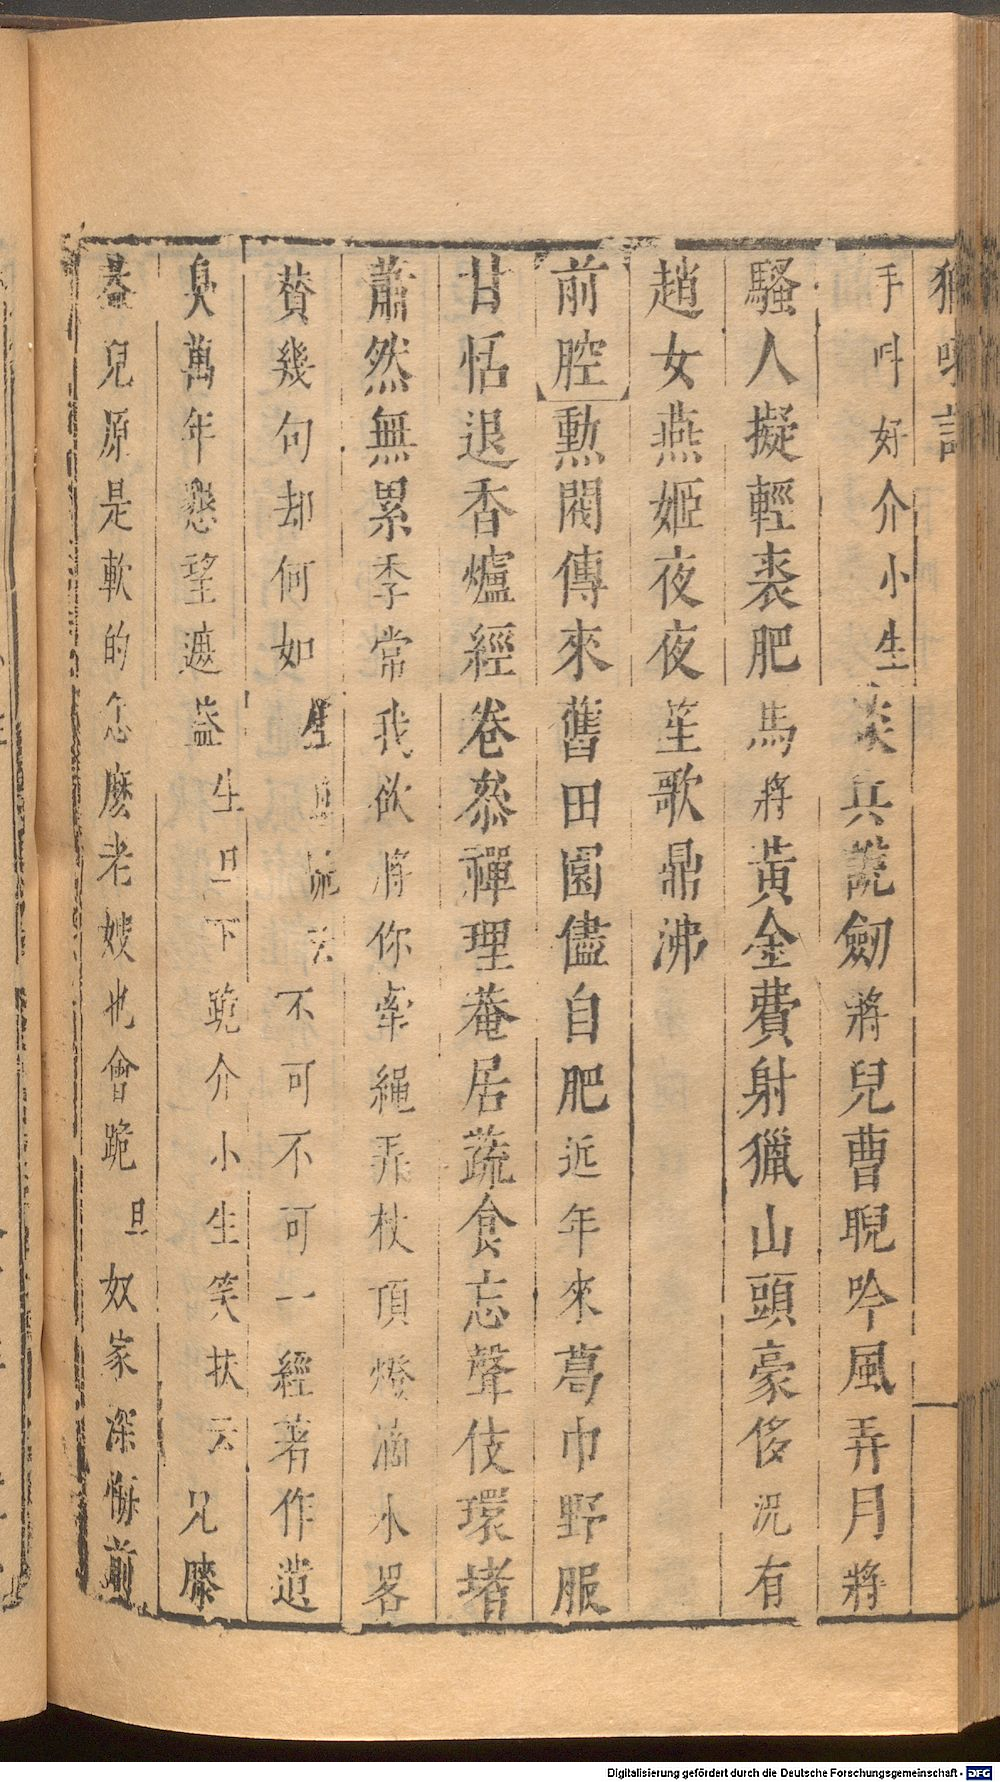 獅吼記
手叫好介小生談兵說劍將兒曹睨吟風弄月將
騷人擬輕裘肥馬將黃金費射獵山頭豪侈況有
趙女燕姬夜夜笙歌鼎沸
前腔勲閥傳來舊田園儘自肥近年來葛巾野服
甘恬退香爐經卷叅禪理菴居蔬食忘聲伎環堵
蕭然無累季常我欲將你牽繩弄杖頂燈滴水畧
賛幾句却何如生旦跪云不可不可一經著作遺
臭萬年懇望遮葢生旦下跪介小生笑扶云兄膝
葢兒原是軟的怎麽老嫂也會跪旦奴家深悔前
Digitalisierung gefördert durch die Deutsche Forschungsgemeinschaft - DFG